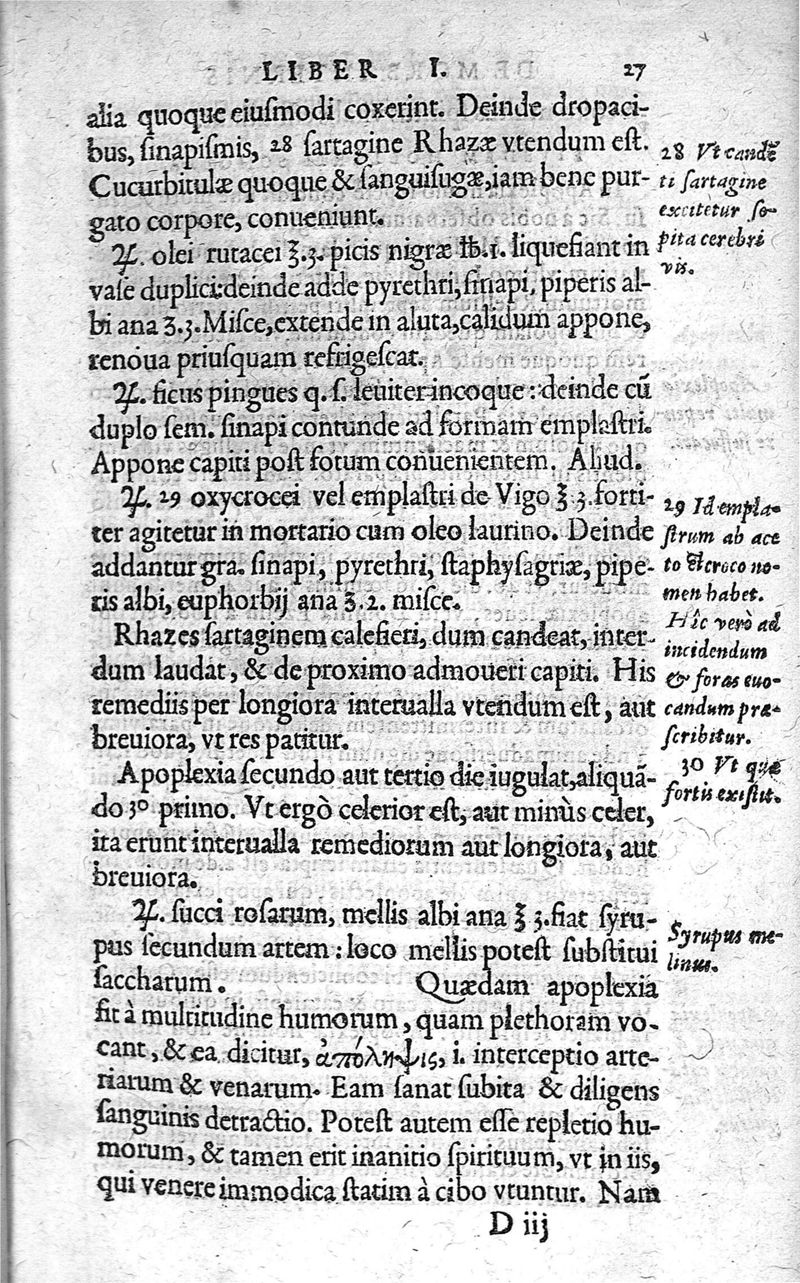 LIBER I. 27
alia quoque eiuſmodi coxerint. Deinde dropaci-
bus, ſinapiſmis, 28 ſartagine Rhazæ vtendum eſt.
Cucurbitulæ quoque & ſanguiſugæ, iam bene pur-
gato corpore, conueniunt.
℞. olei rutacei ℥.3. picis nigræ ℔.1. liquefiant in
vaſe duplici: deinde adde pyrethri, ſinapi, piperis al-
bi ana ʒ.3. Miſce, extende in aluta, calidum appone,
renoua priuſquam refrigeſcat.
℞. ficus pingues q. ſ. leuiter incoque: deinde cū
duplo ſem. ſinapi contunde ad formam emplaſtri.
Appone capiti poſt fotum conuenientem. Aliud.
℞. 29 oxycrocei vel emplaſtri de Vigo ℥ 3. forti-
ter agitetur in mortario cum oleo laurino. Deinde
addantur gra. ſinapi, pyrethri, ſtaphyſagriæ, pipe-
ris albi, euphorbij ana ʒ.2. miſce.
Rhazes ſartaginem calefieri, dum candeat, inter-
dum laudat, & de proximo admoueri capiti. His
remediis per longiora interualla vtendum eſt, aut
breuiora, vt res patitur.
Apoplexia ſecundo aut tertio die iugulat, aliquā-
do 30 primo. Vt ergò celerior eſt, aut minùs celer,
ita erunt interualla remediorum aut longiora, aut
breuiora.
℞. ſucci roſarum, mellis albi ana ℥ 3. fiat ſyru-
pus ſecundum artem: loco mellis poteſt ſubſtitui
ſaccharum. Quædam apoplexia
fit à multitudine humorum, quam plethoram vo-
cant, & ea dicitur, ἀπόληψις, i. interceptio arte-
riarum & venarum. Eam ſanat ſubita & diligens
ſanguinis detractio. Poteſt autem eſſe repletio hu-
morum, & tamen erit inanitio ſpirituum, vt in iis,
qui venere immodica ſtatim à cibo vtuntur. Nam
D iij
28 Vt candē
ti ſartagine
excitetur ſo-
pita cerebri
vis.
29 Id empla-
ſtrum ab ace
to & croco no-
men habet.
Hîc verò ad
incidendum
& foras euo-
candum præ-
ſcribitur.
30 Vt quæ
fortis exiſtit.
Syrupus me-
linus.